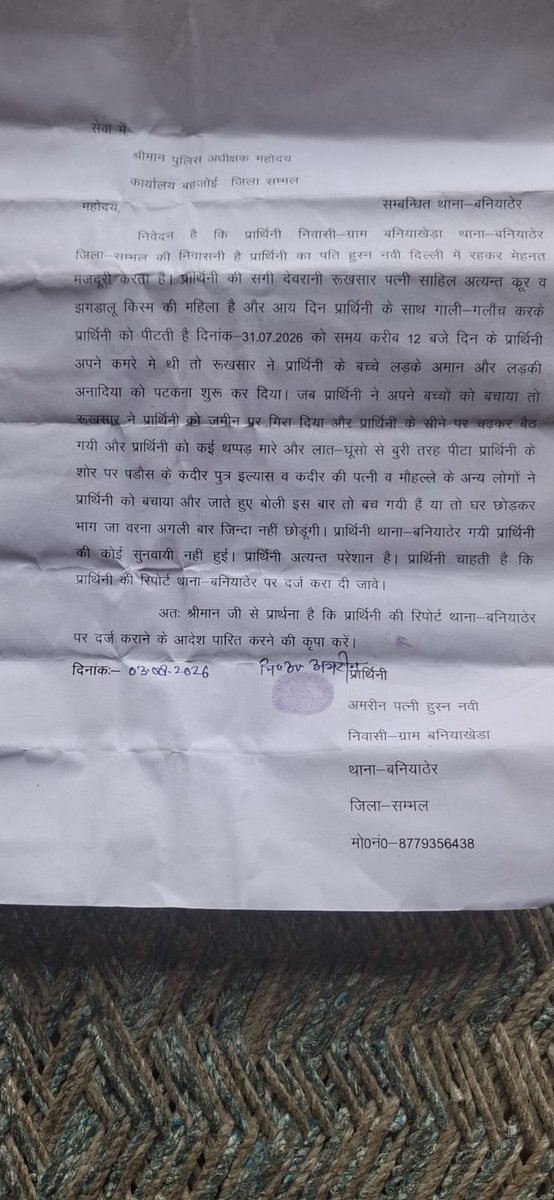 सेवा में,
श्रीमान पुलिस अधीक्षक महोदय
कार्यालय बहजोई जिला सम्भल
महोदय, सम्बन्धित थाना–बनियाठेर
निवेदन है कि प्रार्थिनी निवासी–ग्राम बनियाखेडा थाना–बनियाठेर
जिला–सम्भल की निवासनी है प्रार्थिनी का पति हुस्न नवी दिल्ली में रहकर मेहनत
मजदूरी करता है। प्रार्थिनी की सगी देवरानी रूखसार पत्नी साहिल अत्यन्त कूर व
झगडालू किस्म की महिला है और आय दिन प्रार्थिनी के साथ गाली–गलौंच करके
प्रार्थिनी को पीटती है दिनांक–31.07.2026 को समय करीब 12 बजे दिन के प्रार्थिनी
अपने कमरे मे थी तो रूखसार ने प्रार्थिनी के बच्चे लड़के अमान और लड़की
अनादिया को पटकना शुरू कर दिया। जब प्रार्थिनी ने अपने बच्चों को बचाया तो
रूखसार ने प्रार्थिनी को जमीन पर गिरा दिया और प्रार्थिनी के सीने पर चढकर बैठ
गयी और प्रार्थिनी को कई थप्पड़ मारे और लात–घूंसो से बुरी तरह पीटा प्रार्थिनी के
शोर पर पडौस के कदीर पुत्र इल्यास व कदीर की पत्नी व मौहल्ले के अन्य लोगों ने
प्रार्थिनी को बचाया और जाते हुए बोली इस बार तो बच गयी हैं या तो घर छोड़कर
भाग जा वरना अगली बार जिन्दा नहीं छोडूंगी। प्रार्थिनी थाना–बनियाठेर गयी प्रार्थिनी
की कोई सुनवायी नहीं हुई। प्रार्थिनी अत्यन्त परेशान है। प्रार्थिनी चाहती है कि
प्रार्थिनी की रिपोर्ट थाना–बनियाठेर पर दर्ज करा दी जावे।
अतः श्रीमान जी से प्रार्थना है कि प्रार्थिनी की रिपोर्ट थाना–बनियाठेर
पर दर्ज कराने के आदेश पारित करने की कृपा करें।
दिनांकः– 03.08.2026 नि०अं० अमरीन प्रार्थिनी
अमरीन पत्नी हुस्न नवी
निवासी–ग्राम बनियाखेडा
थाना–बनियाठेर
जिला–सम्भल
मो0नं0–8779356438